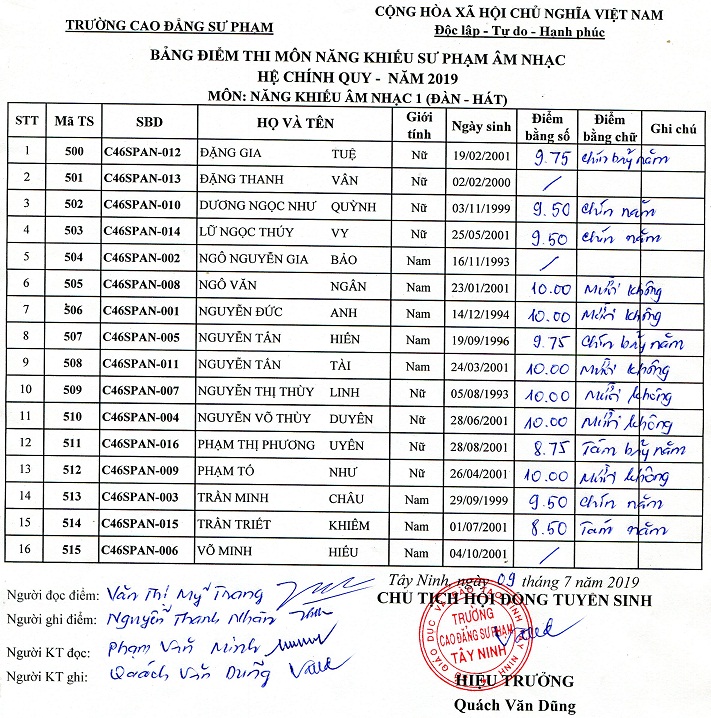 TRƯỜNG CAO ĐẲNG SƯ PHẠM
CỘNG HÒA XÃ HỘI CHỦ NGHĨA VIỆT NAM
Độc lập - Tự do - Hanh phúc
BẢNG ĐIỂM THI MÔN NĂNG KHIẾU SƯ PHẠM ÂM NHẠC
HỆ CHÍNH QUY - NĂM 2019
MÔN: NĂNG KHIẾU ÂM NHẠC 1 (ĐÀN - HÁT)
STT Mã TS SBD HỌ VÀ TÊN Giới tính Ngày sinh Điểm bằng số Điểm bằng chữ Ghi chú
1 500 C46SPAN-012 ĐẶNG GIA TUỆ Nữ 19/02/2001 9.75 Chín bảy năm
2 501 C46SPAN-013 ĐẶNG THANH VÂN Nữ 02/02/2000 /
3 502 C46SPAN-010 DƯƠNG NGỌC NHƯ QUỲNH Nữ 03/11/1999 9.50 Chín năm
4 503 C46SPAN-014 LỮ NGỌC THÚY VY Nữ 25/05/2001 9.50 Chín năm
5 504 C46SPAN-002 NGÔ NGUYỄN GIA BẢO Nam 16/11/1993 /
6 505 C46SPAN-008 NGÔ VĂN NGÂN Nam 23/01/2001 10.00 Mười không
7 506 C46SPAN-001 NGUYỄN ĐỨC ANH Nam 14/12/1994 10.00 Mười không
8 507 C46SPAN-005 NGUYỄN TẤN HIỀN Nam 19/09/1996 9.75 Chín bảy năm
9 508 C46SPAN-011 NGUYỄN TẤN TÀI Nam 24/03/2001 10.00 Mười không
10 509 C46SPAN-007 NGUYỄN THỊ THÙY LINH Nữ 05/08/1993 10.00 Mười không
11 510 C46SPAN-004 NGUYỄN VÕ THÙY DUYÊN Nữ 28/06/2001 10.00 Mười không
12 511 C46SPAN-016 PHẠM THỊ PHƯƠNG UYÊN Nữ 28/08/2001 8.75 Tám bảy năm
13 512 C46SPAN-009 PHẠM TÓ NHƯ Nữ 26/04/2001 10.00 Mười không
14 513 C46SPAN-003 TRẦN MINH CHÂU Nam 29/09/1999 9.50 Chín năm
15 514 C46SPAN-015 TRẦN TRIẾT KHIÊM Nam 01/07/2001 8.50 Tám năm
16 515 C46SPAN-006 VÕ MINH HIẾU Nam 04/10/2001 /
Tây Ninh, ngày 09 tháng 7 năm 2019
Người đọc điểm: Văn Thị Mỹ Trang
CHỦ TỊCH HỘI ĐỒNG TUYỂN SINH
Người ghi điểm: Nguyễn Thanh Nhân
Người KT đọc: Phạm Văn Minh
TRƯỜNG
CAO ĐẲNG SƯ PHẠM
TÂY NINH
Người KT ghi: Quách Văn Dũng
HIỆU TRƯỞNG
Quách Văn Dũng